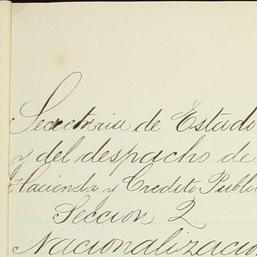 Secretria de Estado
y del despacho de
Hacienda y Credito Publi
Seccion 2
Nacionalizacion